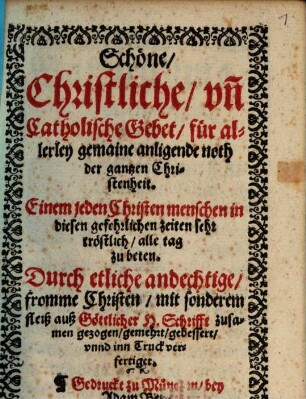 1
Schöne/
Christliche/ vñ
Catholische Gebet/ für al-
lerley gemaine anligende noth
der gantzen Chri-
stenheit.
Einem jeden Christen menschen in
diesen gefehrlichen zeiten sehr
tröstlich/ alle tag
zu beten.
Durch etliche andechtige/
fromme Christen/ mit sonderem
fleiß auß Göttlicher H. Schrifft zusa-
men gezogen/ gemehrt/ gebessert/
vnnd inn Truck ver-
fertiget.
Gedruckt zu München/ bey
Adam Berg